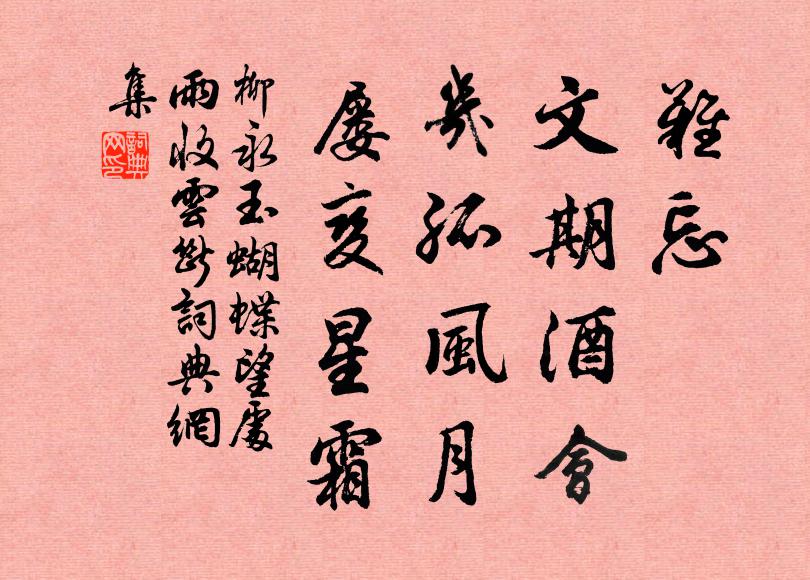 難忘
文期酒會
幾孤風月
屢變星霜
柳永玉蝴蝶望處
雨收雲斷詞典網
集
詞典
网印